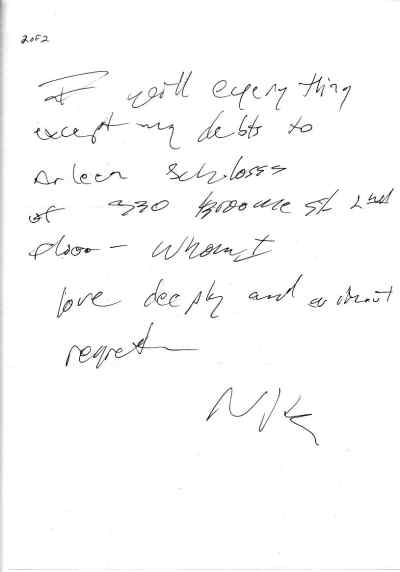 2 of 2
I will everything
except my debts to
Arleen Schloss
of 330 Broome St 2nd
floor - whom I
love deeply and without
regret
Nik